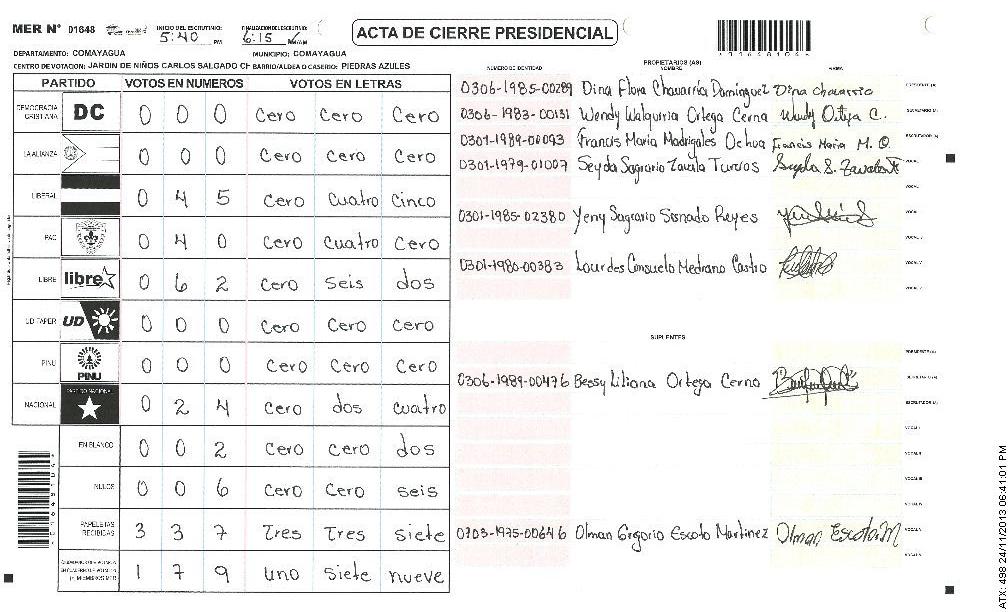 MER Nº 01648
INICIO DEL ESCRUTINIO: 5:40 PM
FINALIZACION DEL ESCRUTINIO: 6:15
ACTA DE CIERRE PRESIDENCIAL
DEPARTAMENTO: COMAYAGUA
MUNICIPIO: COMAYAGUA
CENTRO DE VOTACION: JARDIN DE NIÑOS CARLOS SALGADO CH BARRIO/ALDEA O CASERIO: PIEDRAS AZULES
PARTIDO VOTOS EN NUMEROS VOTOS EN LETRAS
DEMOCRACIA CRISTIANA DC 0 0 0 Cero Cero Cero
LA ALIANZA 0 0 0 Cero Cero Cero
LIBERAL 0 4 5 Cero cuatro cinco
PAC 0 4 0 Cero cuatro Cero
LIBRE libre 0 6 2 Cero seis dos
UD FAPER UD 0 0 0 Cero Cero Cero
PINU PINU 0 0 0 Cero Cero Cero
NACIONAL PARTIDO NACIONAL 0 2 4 Cero dos cuatro
EN BLANCO 0 0 2 Cero cero dos
NULOS 0 0 6 Cero Cero seis
PAPELETAS RECIBIDAS 3 3 7 Tres Tres siete
1 7 9 uno siete nueve
PROPIETARIOS (AS)
NUMERO DE IDENTIDAD NOMBRE FIRMA
0306-1985-00289 Dina Flora Chavarría Dominguez Dina Chavarria
0306-1983-00131 Wendy Walquiria Ortega Cerna Wendy Ortega C.
0301-1989-00093 Francis Maria Madrigales Ochoa Francis Maria M. O.
0301-1979-01007 Seyda Sagrario Zavala Turcios Seyda S. Zavala T
0301-1985-02380 Yeny Sagrario Sisnado Reyes
0301-1980-00383 Lourdes Consuelo Medrano Castro
SUPLENTES
0306-1989-00476 Bessy Liliana Ortega Cerna
0703-1975-00646 Olman Gregorio Escoto Martinez Olman Escoto M
ATX: 498 24/11/2013 06:41:01 PM